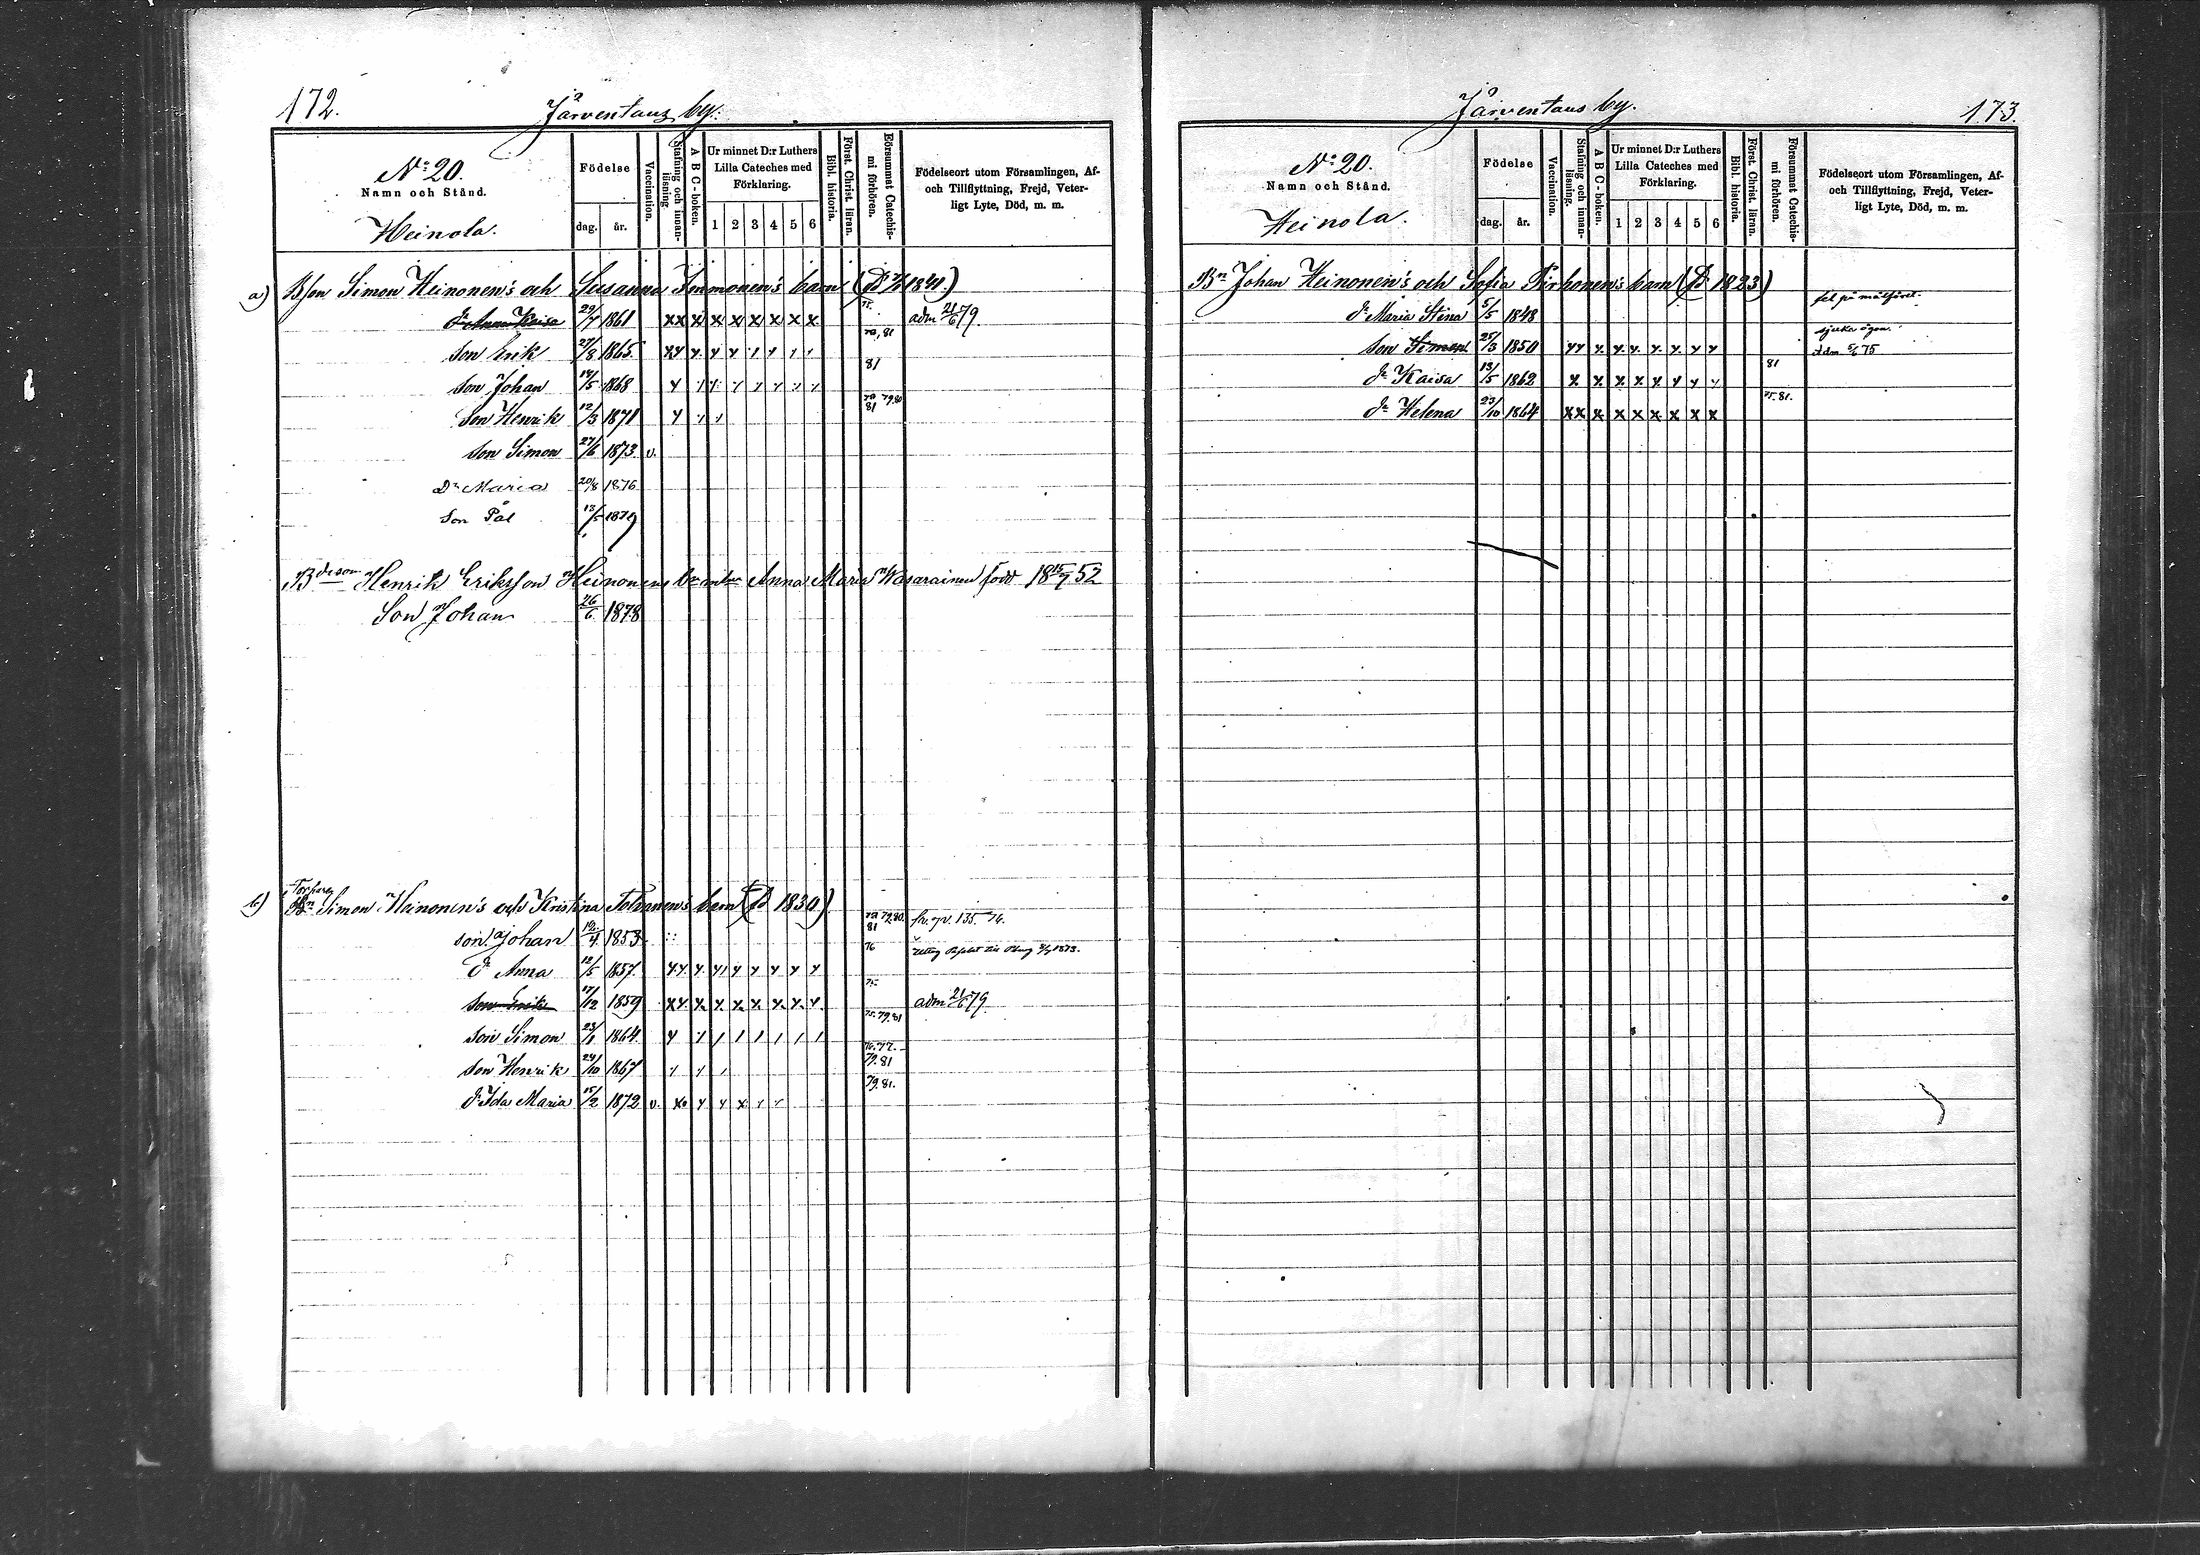 172.
Järventaus by.
No 20.
Namn och Stånd.
Heinola.
Födelse
dag. år.
Vaccination.
Stafning och innanläsning
A B C-boken.
Ur minnet D:r Luthers
Lilla Cateches med
Förklaring.
1 2 3 4 5 6
Bibl. historia.
Först. Christ. läran.
Försummat Catechismi förhören.
Födelseort utom Församlingen, Af-
och Tillflyttning, Frejd, Veter-
ligt Lyte, Död, m. m.
a) Bson Simon Heinonen's och Susanna Immonen's barn 1841.)
dr Anna Kaisa 29/7 1861 x x x x x x x x x 75. adm 21/6 79.
Son Erik 27/8 1865 81
Son Johan 14/5 1868 81
Son Henrik 12/3 1871 79.80 81
Son Simon 27/6 1873 v.
Dr Maria 20/8 1876
Son Pål 13/5 1879
Bdeson Henrik Eriksson Heinonens Anna Maria Wasarainen född 18 15/7 52
Son Johan 26/6 1878
b) Torparen
Bn Simon Heinonen's och Kristina Tolvanen's barn (D 1830)
son Johan 12/4 1853 79.80. 81 135. 76.
dr Anna 12/5 1857 76
son Erik 17/12 1859 75. adm 21/6 79.
son Simon 23/1 1864 75.79.81
son Henrik 24/10 1867 76.77. 79.81
dr Ida Maria 15/2 1872 v. 79.81.
Järventaus by.
173.
No 20.
Namn och Stånd.
Heinola.
Födelse
dag. år.
Vaccination.
Stafning och innanläsning.
A B C-boken.
Ur minnet D:r Luthers
Lilla Cateches med
Förklaring.
1 2 3 4 5 6
Bibl. historia.
Först. Christ. läran.
Försummat Catechismi förhören.
Födelseort utom Församlingen, Af-
och Tillflyttning, Frejd, Veter-
ligt Lyte, Död, m. m.
Bn Johan Heinonen's och Sofia Pirhonen's barn (D 1823)
dr Maria Stina 5/5 1848 fel på målföret.
son Simon 25/3 1850 sjuka ögon. Adm 5/6 75
dr Kaisa 13/5 1862 81
dr Helena 23/10 1864 x x x x x x x x x 75.81.